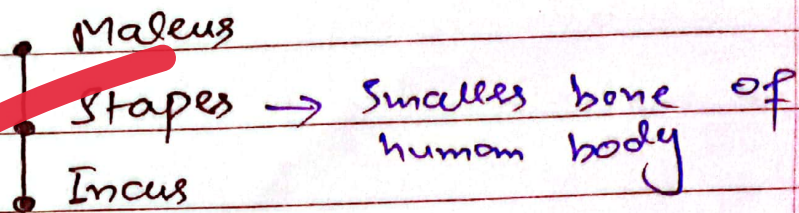 Maleus
Stapes → Smalles bone of
human body
Incus